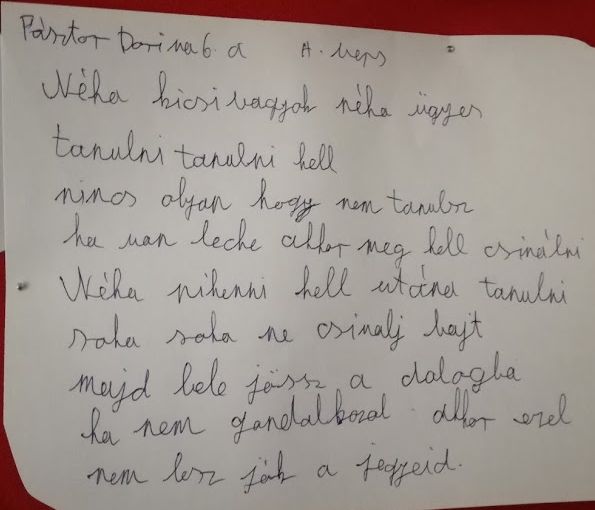 Pásztor Dorina 6. a A. vers
Néha kicsi vagyok néha ügyes
tanulni tanulni kell
nincs olyan hogy nem tanulsz
ha van lecke akkor meg kell csinálni
Néha pihenni kell utána tanulni
soha soha ne csinalj bajt
majd bele jössz a dologba
ha nem gondolkozol akkor ezel
nem lesz jók a jegyeid.